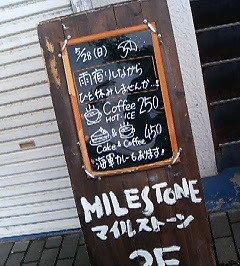 5/28(日)
雨宿りしながら
ひと休みしませんか..?
Coffee 250
HOT・ICE
& 450
Cake & Coffee
海軍カレーもあります
MILESTONE
マイルストーン
2F